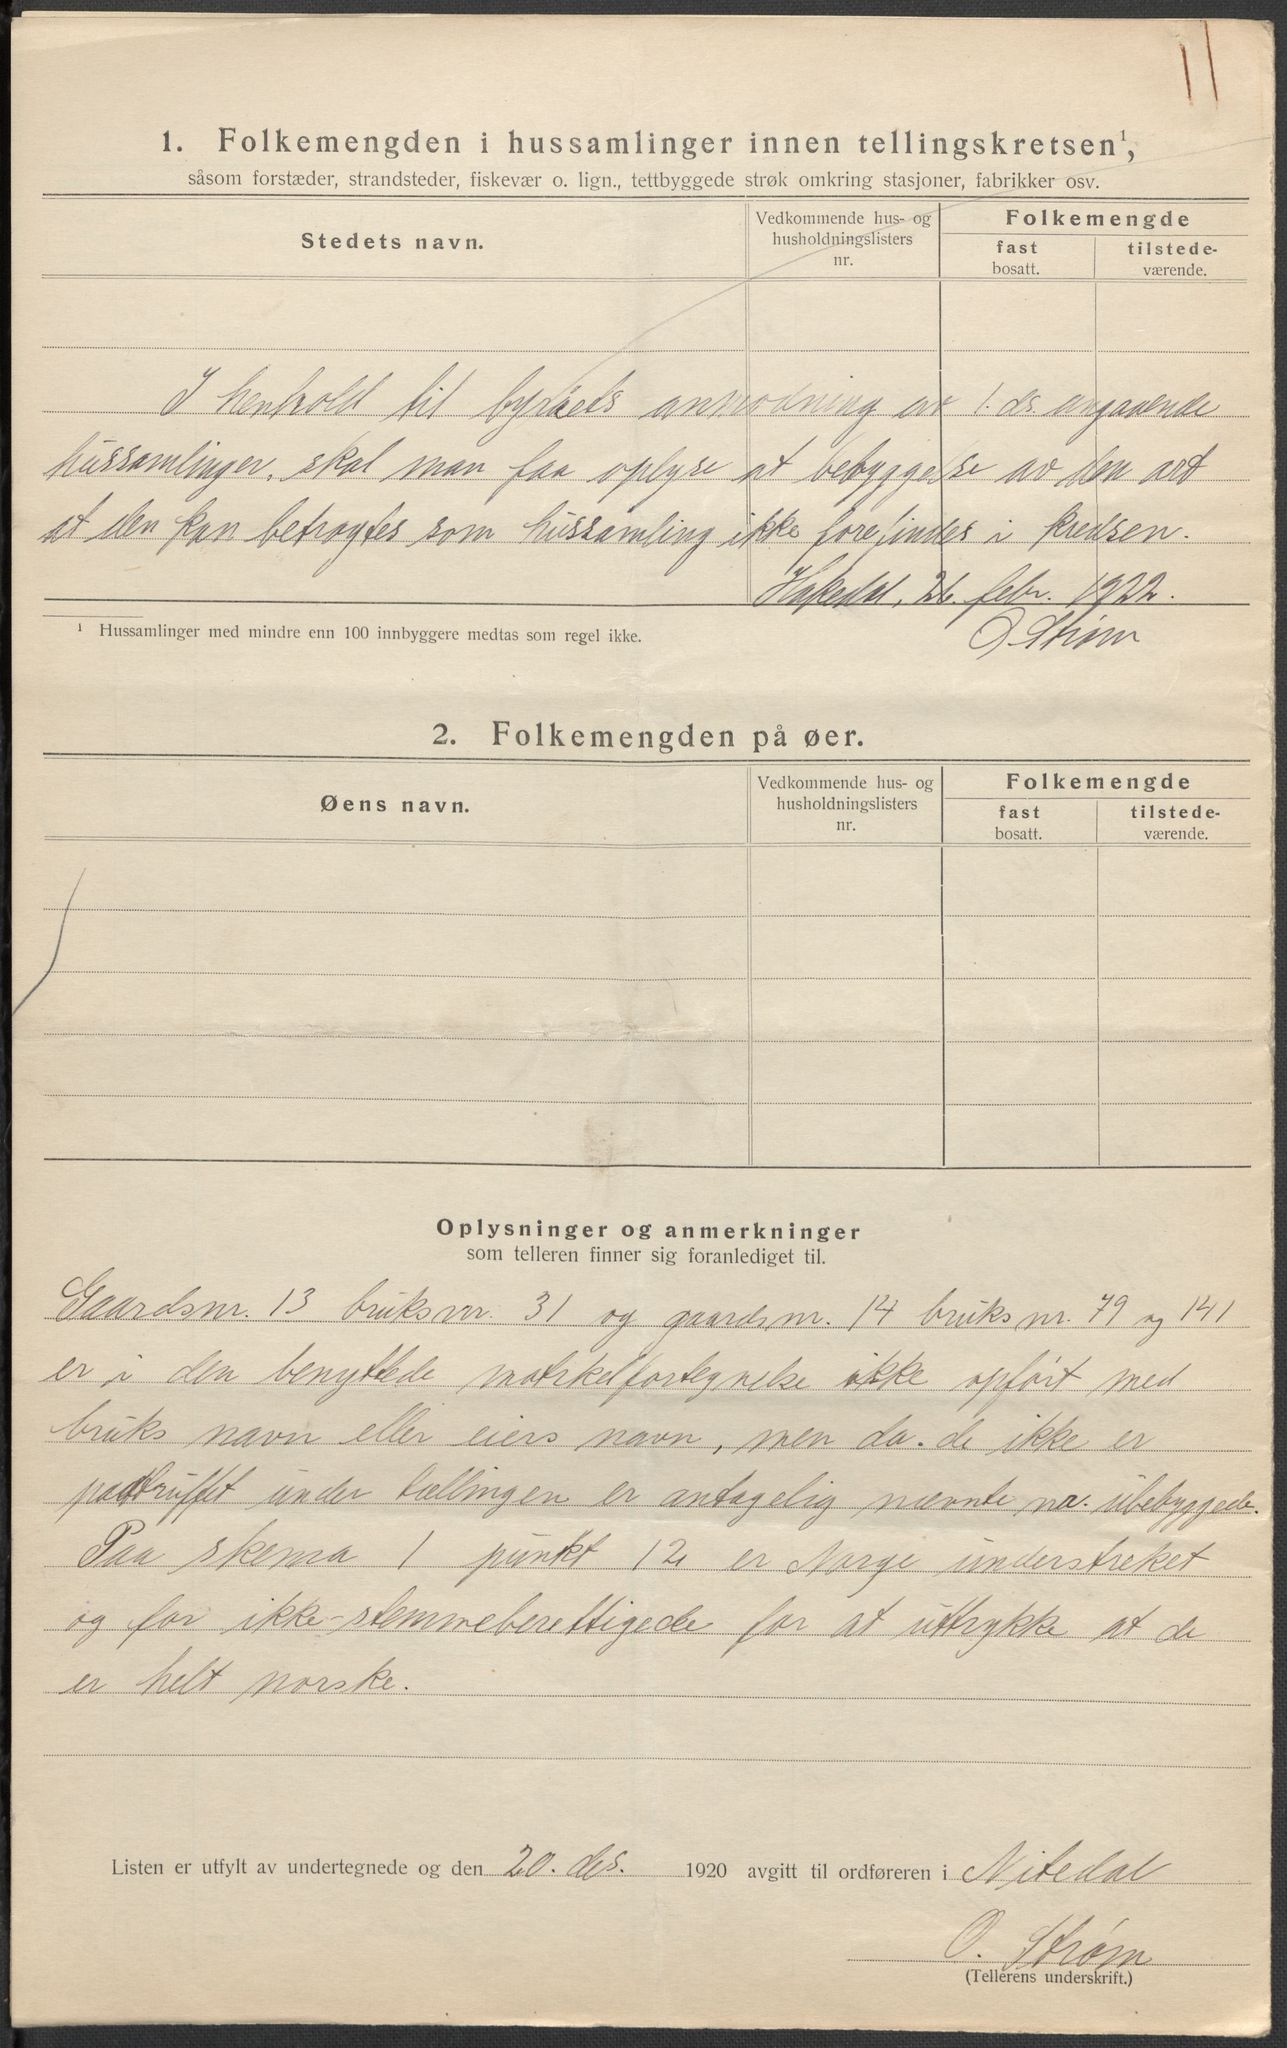 11
1. Folkemengden i hussamlinger innen tellingskretsen¹,
såsom forstæder, strandsteder, fiskevær o. lign., tettbyggede strøk omkring stasjoner, fabrikker osv.
Stedets navn.
Vedkommende hus- og
husholdningslisters
nr.
Folkemengde
fast
bosatt.
tilstede-
værende.
I henhold til byraets anmodning av 1. ds. angaaende
hussamlinger, skal man faa oplyse at bebyggelse av den art
at den kan betragtes som hussamling ikke forefindes i kredsen.
Hakedal, 26. febr. 1922.
O. Strøm
¹ Hussamlinger med mindre enn 100 innbyggere medtas som regel ikke.
2. Folkemengden på øer.
Øens navn.
Vedkommende hus- og
husholdningslisters
nr.
Folkemengde
fast
bosatt.
tilstede-
værende.
Oplysninger og anmerkninger
som telleren finner sig foranlediget til.
Gaardsnr. 13 bruksnr. 31 og gaardsnr. 14 bruksnr. 79 og 141
er i den benyttede matrkelfortegnelse ikke opført med
bruks navn eller eiers navn, men da de ikke er
paatruffet under tællingen er antagelig nævnte nr. ubebyggede.
Paa skema 1 punkt 12 er Norge understreket
og for ikke-stemmeberettigede for at uttrykke at de
er helt norske.
Listen er utfylt av undertegnede og den 20. des. 1920 avgitt til ordføreren i Nitedal
O. Strøm
(Tellerens underskrift.)